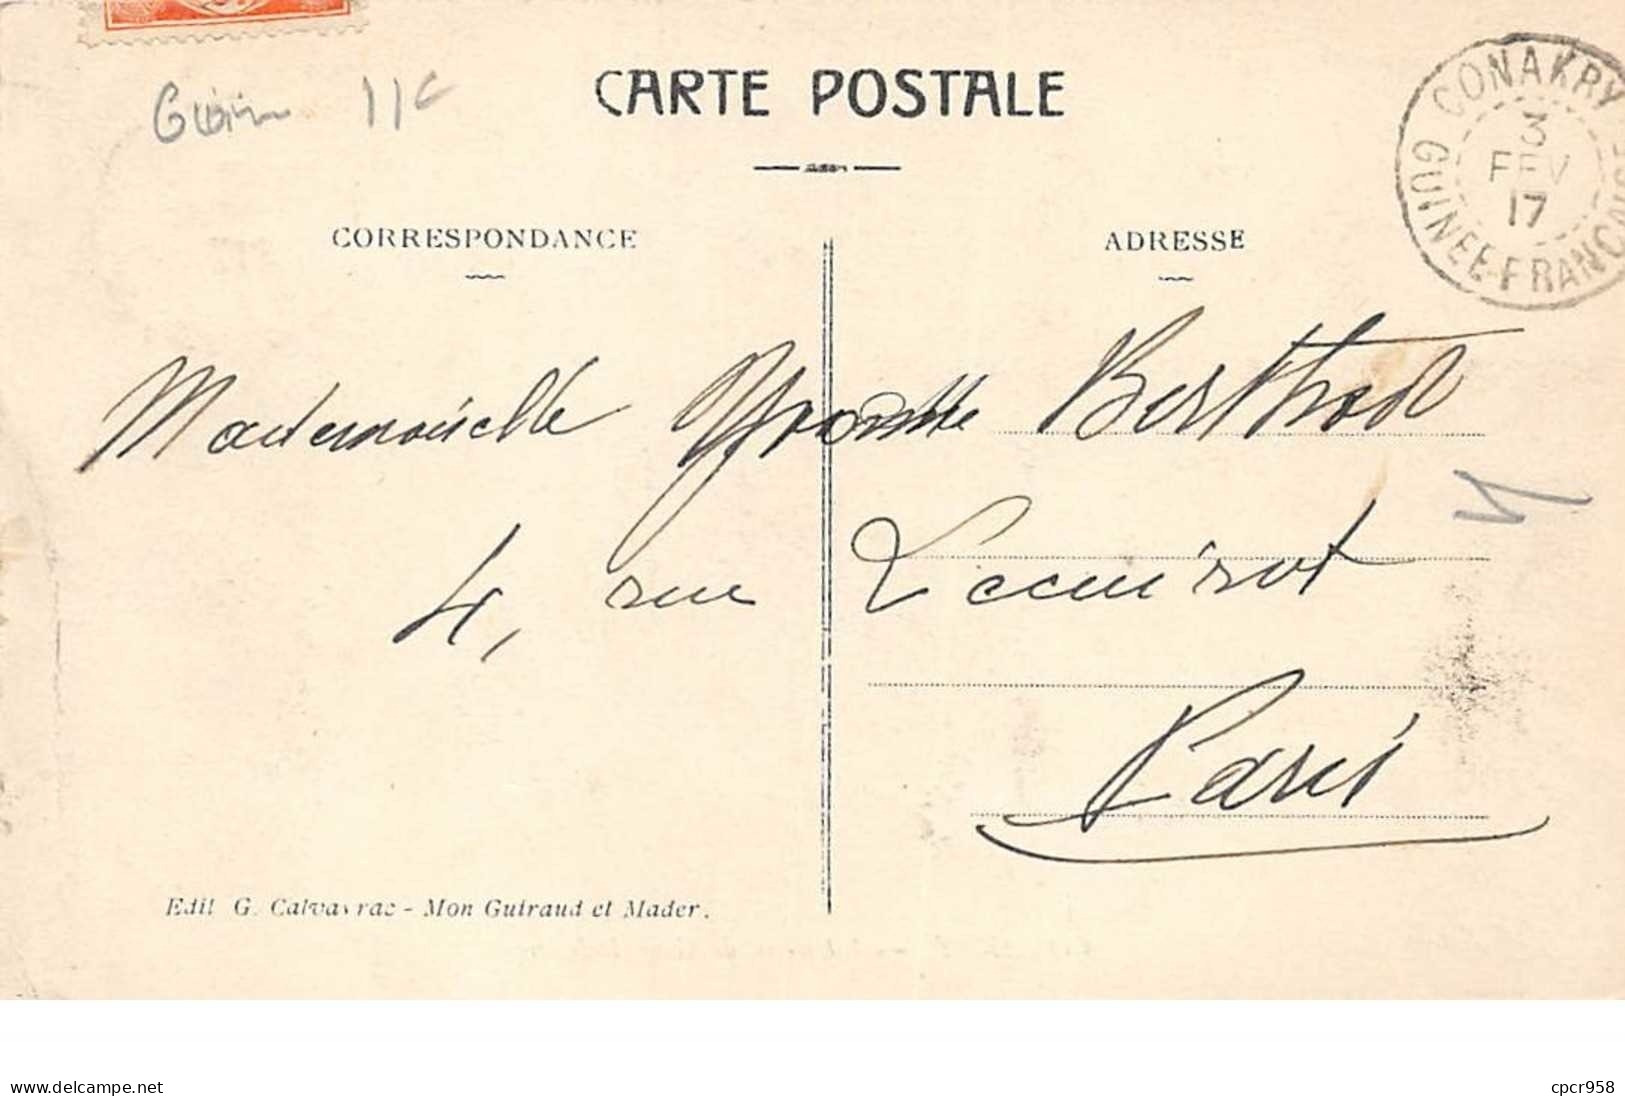 CARTE POSTALE
11€
CONAKRY
3
FEV
17
GUINÉE-FRANÇAISE
CORRESPONDANCE
ADRESSE
Mademoiselle Yvonne Berthod
4, rue
Paris
Edit G. Calvayrac - Mon Guiraud et Mader.
www.delcampe.net
cpcr958